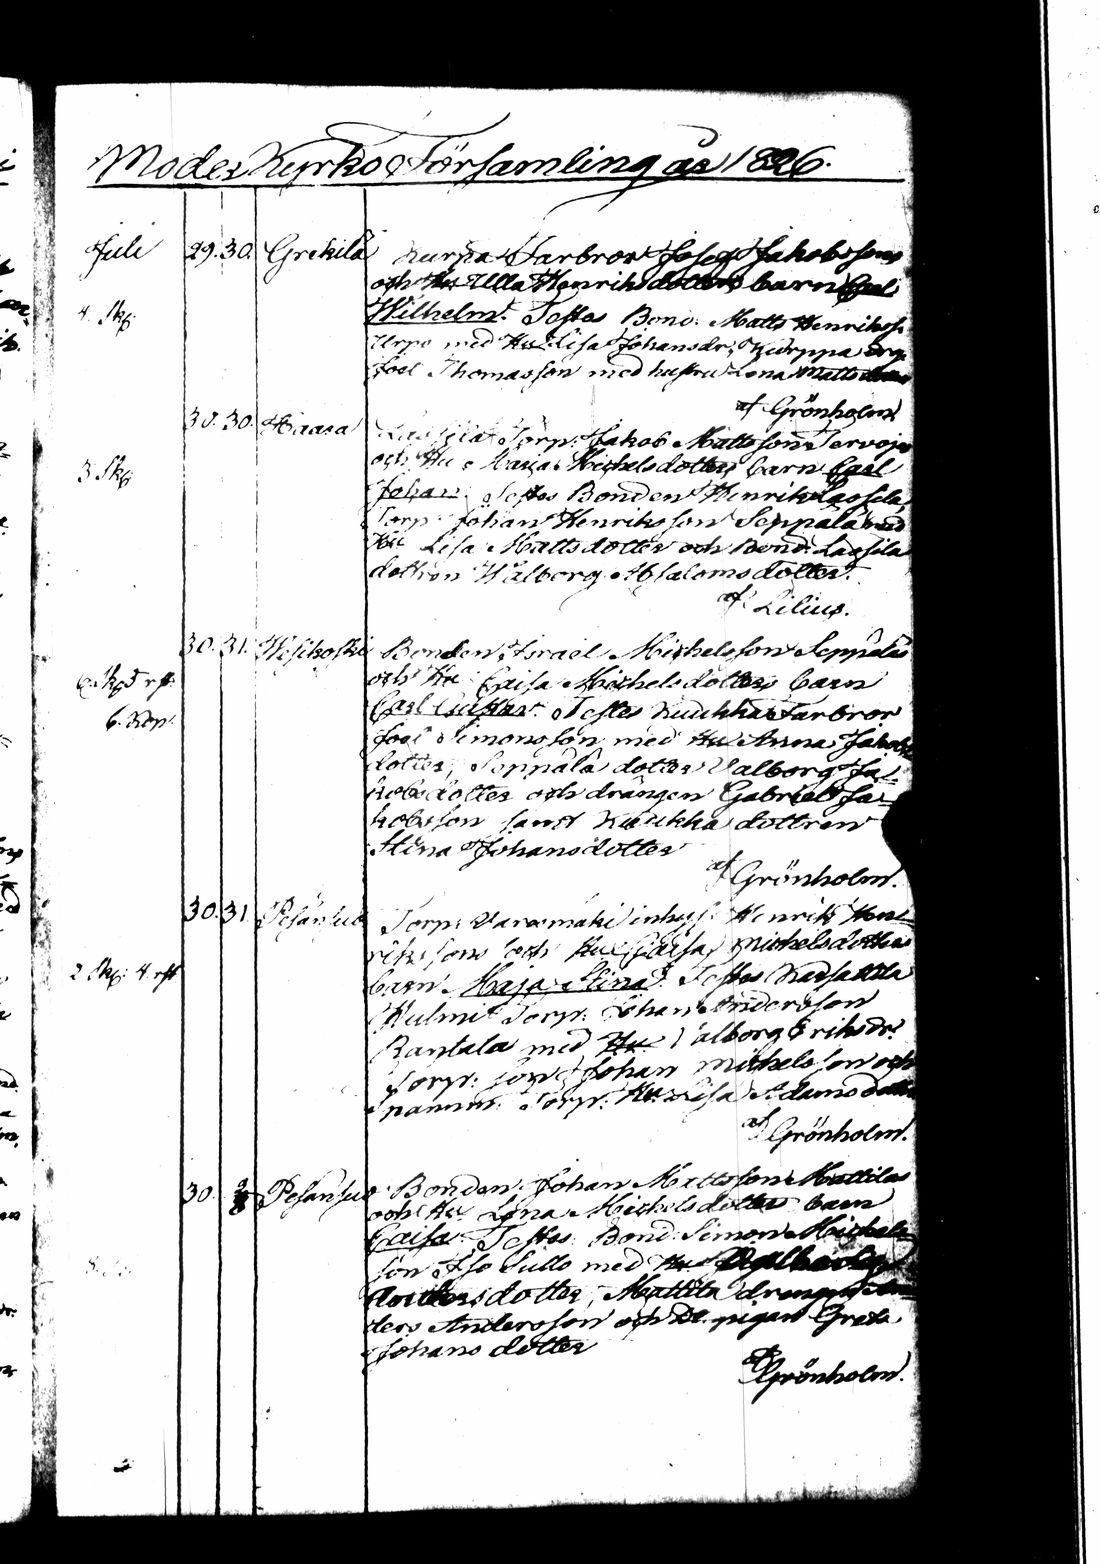 Moder Kyrko Församling år 1826.
Juli 29. 30. Grekilä Kurpa Farbror Josef Jakobssons
och Hu Ulla Henriksdotters barn Carl
Wilhelm. Testes Bond: Matts Henrikss.
4. Sk: Urpo med Hu Lisa Johansdr, Kurppa
Joel Thomasson med hustru Lena Matts dotter
af Grönholm
30. 30. Haara Torp: Jakob Mattsson Tervoja
och Hu Maria Michelsdotters barn Carl
3 Sk: Johan. Testes Bonden Henrik Lassila,
Torp: Johan Henriksson Seppälä med
Hu Lisa Mattsdotter och Bond: Lassila
dottren Walborg Absalomsdotter.
af Lilius.
30. 31. Wesikoski Bonden Israel Michelsson Seppäläs
och Hu Caisa Michelsdotters barn
Carl Gustav. Testes Kuukka Farbror
6. Kop. Joel Simonsson med Hu Anna Jakobs
dotter, Seppälä dotter Valborg Ja-
kobsdotter och drängen Gabriel Ja-
kobsson samt Kuukka dottren
Stina Johansdotter
af Grönholm.
30. 31. Pesänsuo Torp: Varesmäki inhys: Henrik Hen-
rikssons och Hu Caisa Michelsdotters
2 Sk: 4. rst barn Maja Stina. Testes
Torpr: Johan Andersson
Rantala med Hu Valborg Eriksdr.
Torpr: son Johan Michelsson och
Torpr: Hu Lisa Adamsdotter
af Grönholm.
30. Pesänsuo Bonden Johan Mattsson Mattilas
och Hu Lena Michelsdotters barn
Caisa Testes: Bond: Simon Michels
son Iso Sutto med Hu
dotter, Mattila drengen An-
ders Andersson och pigan Greta
Johans dotter
af Grönholm.